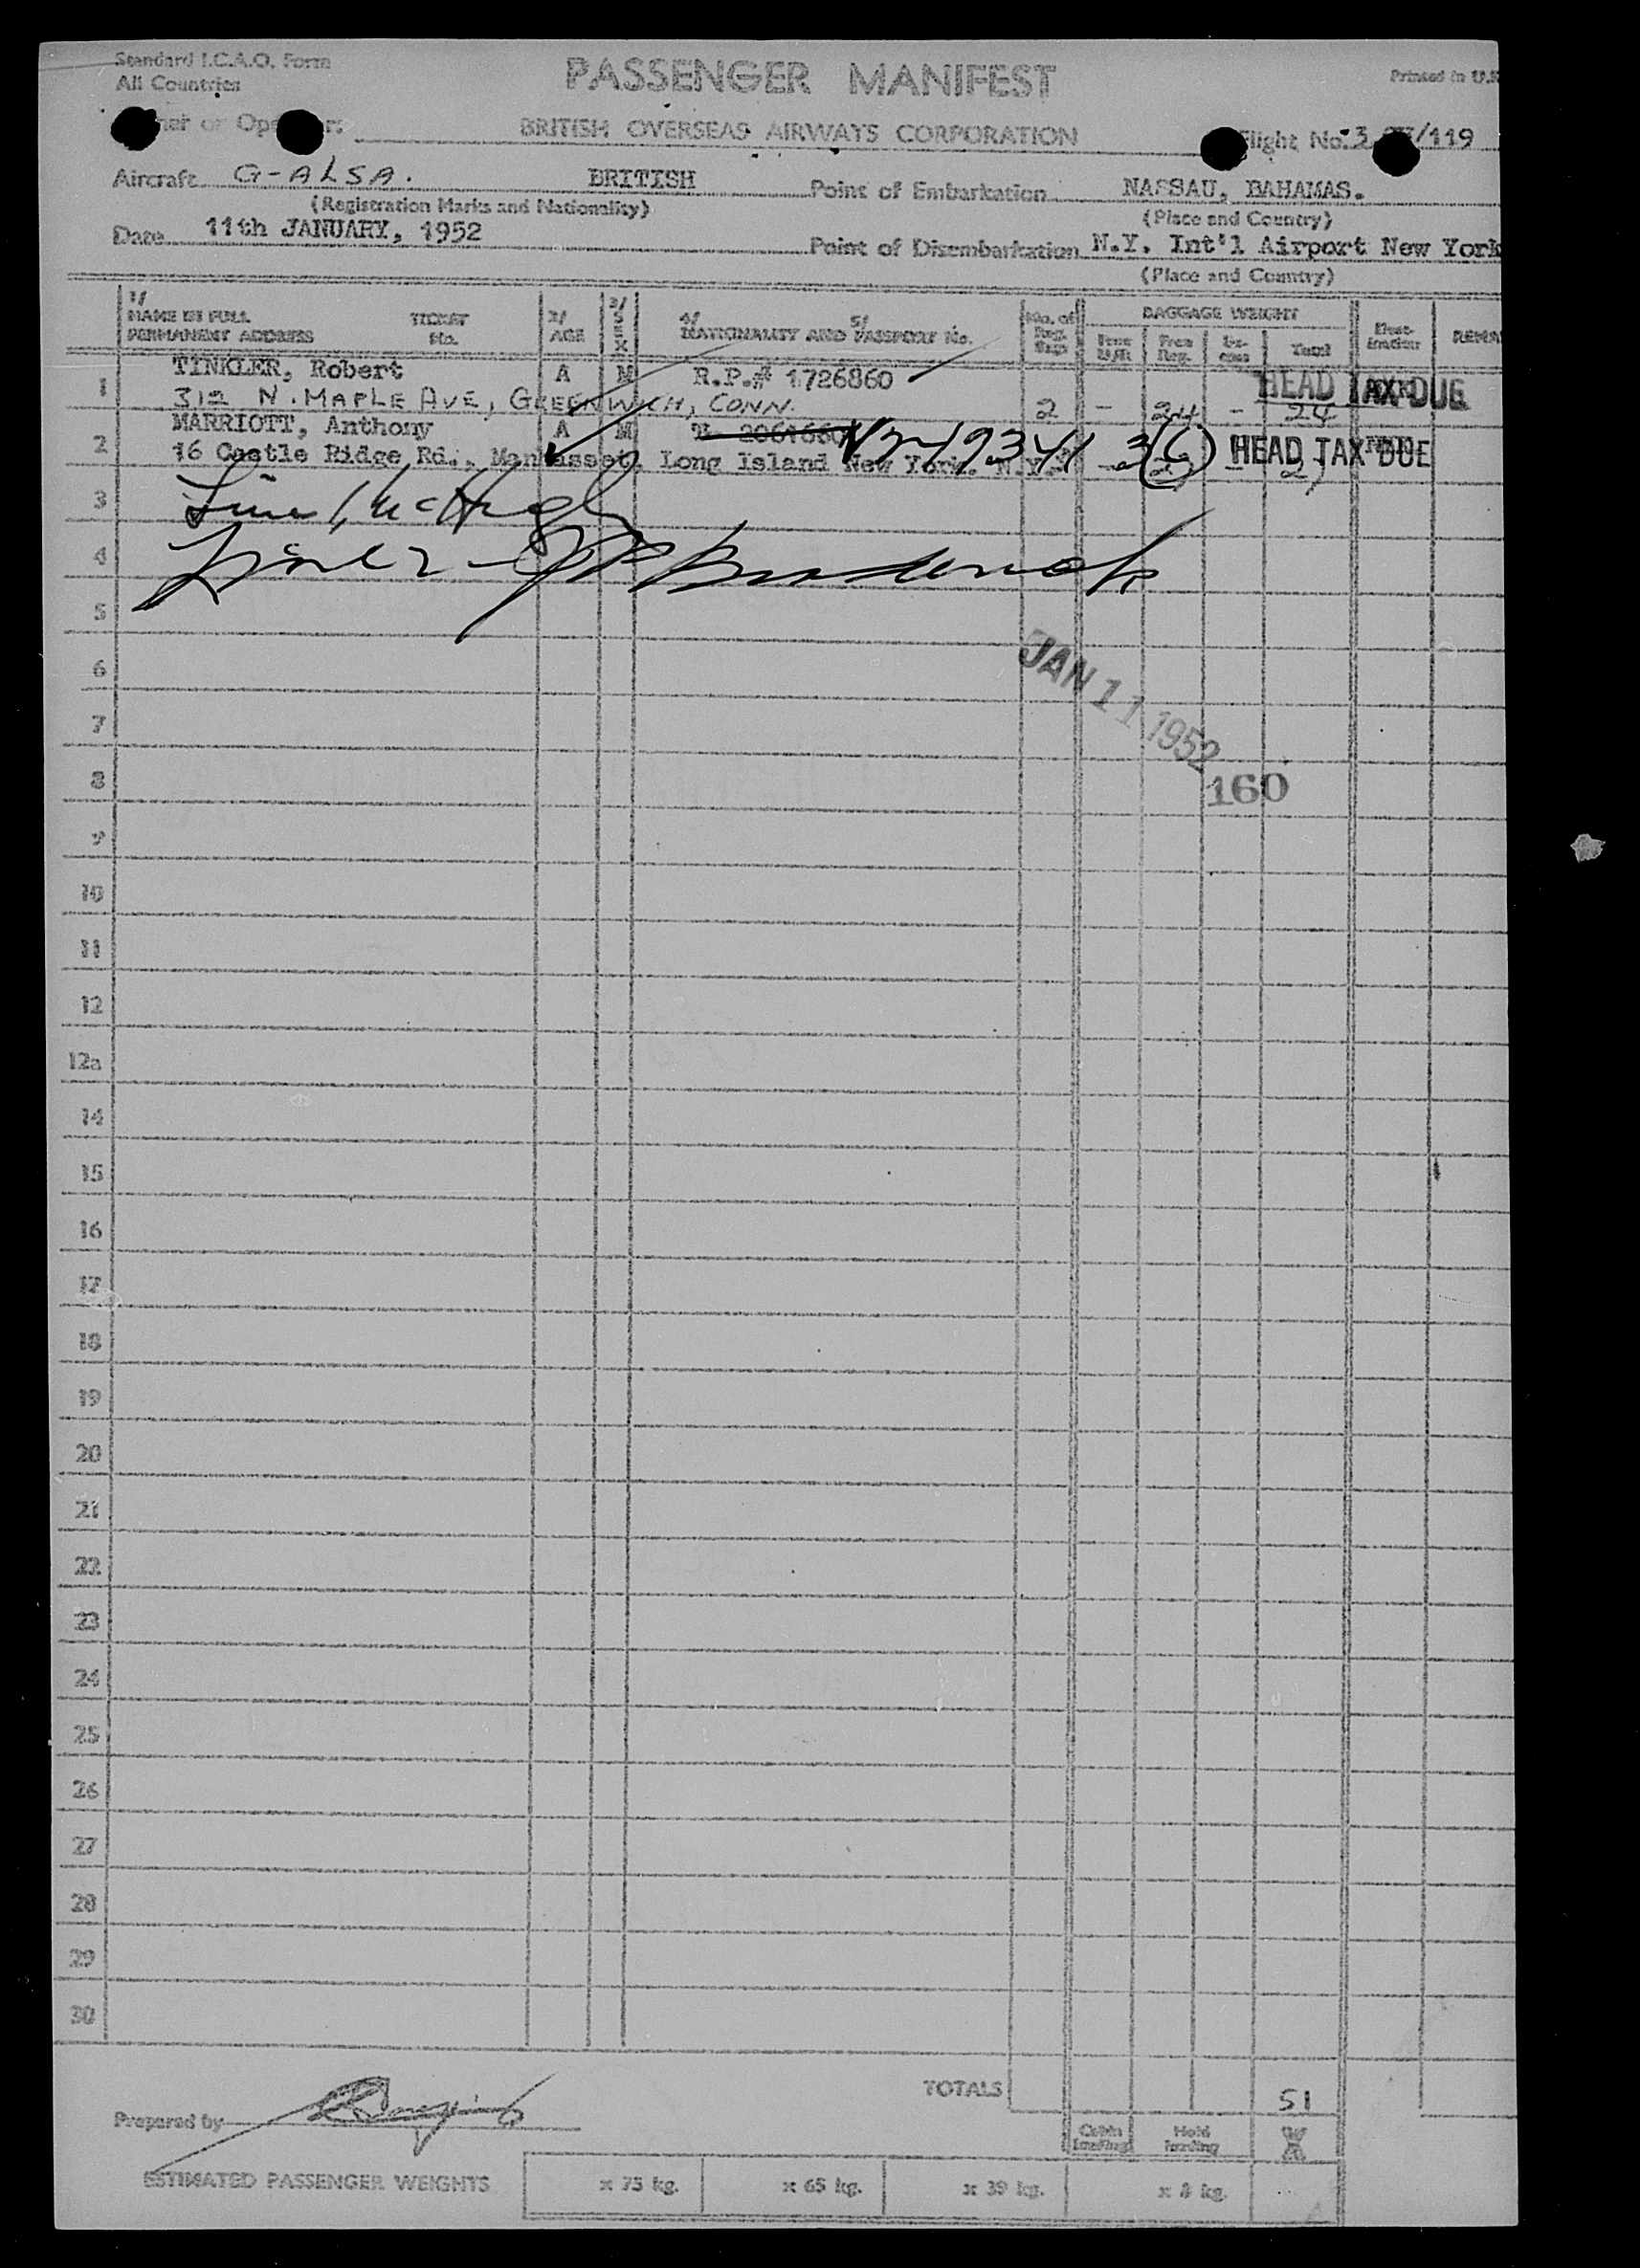 Standard I.C.A.O. Form
All Countries
PASSENGER MANIFEST
Printed in U.K
BRITISH OVERSEAS AIRWAYS CORPORATION
Flight No. /119
Aircraft G-ALSA. BRITISH
(Registration Marks and Nationality)
Point of Embarkation NASSAU, BAHAMAS.
(Place and Country)
Date 11th JANUARY, 1952
Point of Disembarkation N.Y. Int'l Airport New York
(Place and Country)
1/ NAME IN FULL
PERMANENT ADDRESS
TICKET No.
2/ AGE
3/ SEX
4/ NATIONALITY AND 5/ PASSPORT No.
No. of
BAGGAGE WEIGHT
Free
Total
REMA
1 TINKLER, Robert A M R.P.# 1726860
312 N. MAPLE AVE, GREENWICH, CONN. 2 - 24 - 24
HEAD TAX DUE
2 MARRIOTT, Anthony A M 2061660
16 Castle Ridge Rd., Manhasset, Long Island New York. N.Y.
HEAD TAX DUE
3
4
5
6
JAN 11 1952
7
8
160
9
10
11
12
12a
14
15
16
17
18
19
20
21
22
23
24
25
26
27
28
29
30
TOTALS 51
Prepared by
Cabin Loading
Hold Loading
ESTIMATED PASSENGER WEIGHTS x 75 kg. x 65 kg. x 39 kg. x 8 kg.